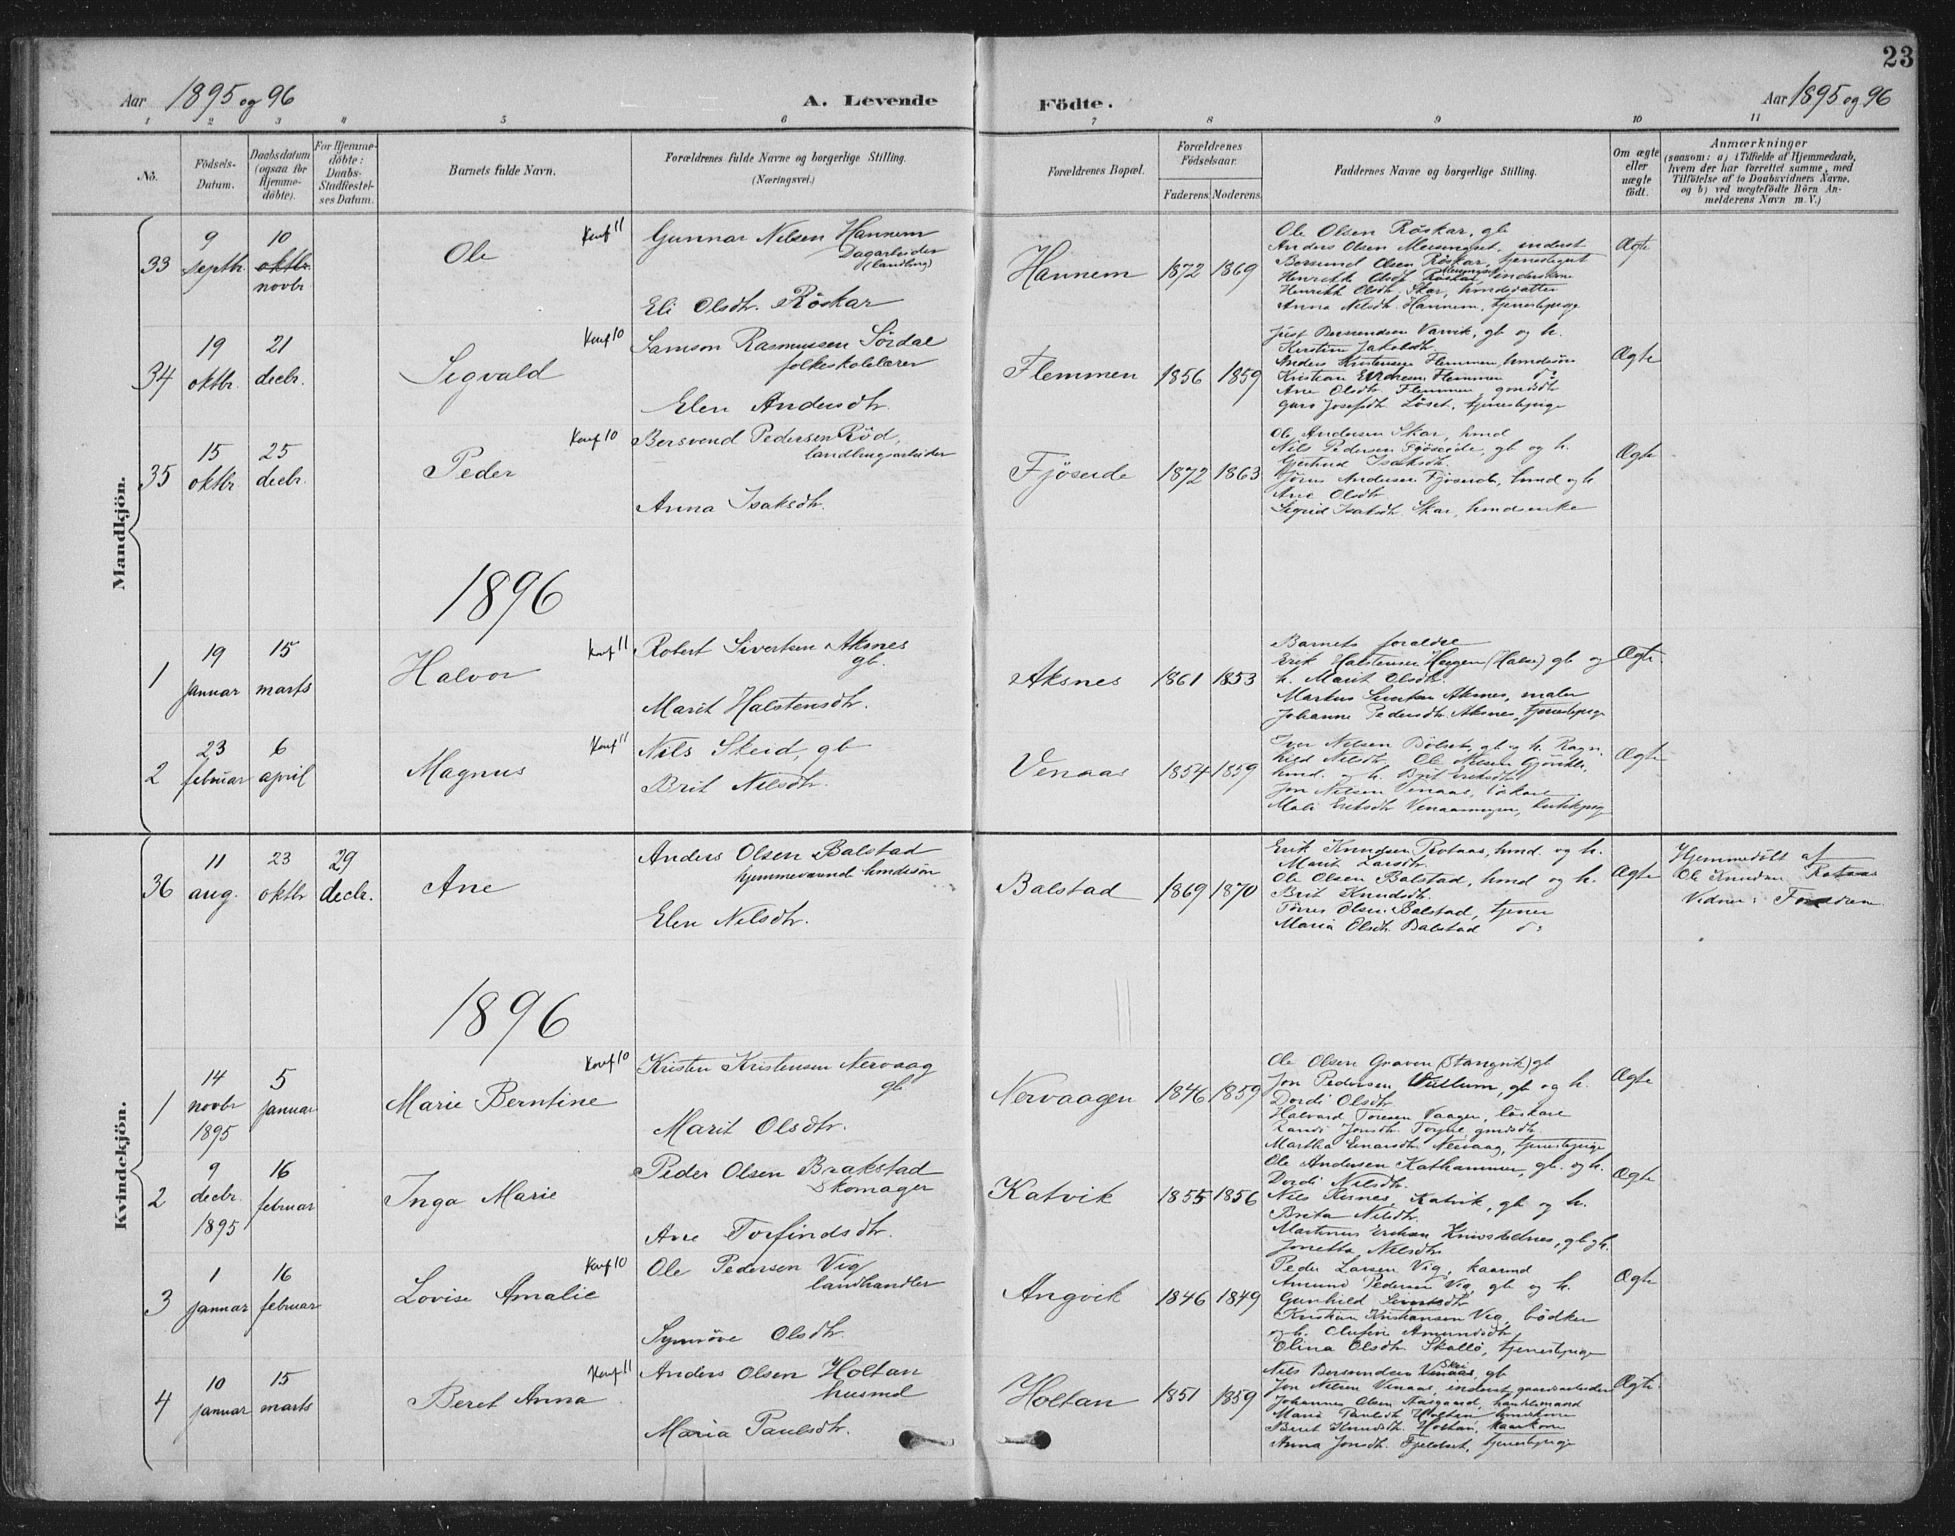 23
Aar 1895 og 96
A. Levende
Födte.
Aar 1895 og 96
1 2 3 4 5 6 7 8 9 10 11
No.
Födsels-Datum.
Daabsdatum (ogsaa for Hjemme-döbte).
For Hjemme-döbte: Daabs-Stadfæstel-ses Datum.
Barnets fulde Navn.
Forældrenes fulde Navne og borgerlige Stilling.
(Næringsvei.)
Forældrenes Bopæl.
Forældrenes Födselsaar.
Faderens. Moderens.
Faddernes Navne og borgerlige Stilling.
Om ægte eller uægte födt.
Anmærkninger
(saasom: a) i Tilfælde af Hjemmedaab, hvem der har forrettet samme, med Tilföielse af to Daabsvidners Navne, og b) ved uægtefödte Börn An-melderens Navn m. V.)
Mandkjön.
33 9 septbr. 10 oktbr. novbr. Ole Konf 11
Gunnar Nilsen Hannem
Dagarbeider
(landbrug)
Eli Olsdtr. Röskar
Hannem 1872 1869
Ole Olsen Röskar, gb
Anders Olsen Meisingset, inderst
Bersvend Olsen Röskar, tjenestegut
Henrikk Olsdtr. Skar, hmdsdatter
Anna Nilsdtr. Hannem, tjenestepige
Ægte
34 19 oktbr. 21 decbr. Sigvald Konf 10
Samson Rasmussen Sördal
folkeskolelærer
Elen Andersdtr.
Flemmen 1856 1859
Just Bersvendsen Varvik, gb og h.
Kirstine Jakobdtr.
Anders Kristensen Flemmen, hmdssön
Kristian Flemmen do
Ane Olsdtr. Flemmen gmdsdtr
Guro Josefsdtr. Löset, tjenestepige
Ægte
35 15 oktbr 25 decbr. Peder Konf 10
Bersvend Pedersen Röd,
landbrugsarbeider
Anna Isaksdtr.
Fjöseide 1872 1863
Ole Andersen Skar, hmd
Nils Pedersen Fjöseide, gb og h.
Gjertrud Isaksdtr.
Andersen Fjöseide, hmd og h.
Ane Olsdtr.
Sigrid Isaksdtr. Skar, hmdsenke
Ægte
1896
1 19 januar 15 marts Halvor Konf 11
Robert Sivertsen Aksnes
gb.
Marit Halstensdtr.
Aksnes 1861 1853
Barnets foreldre
Erik Halstensen Haugen (Halse) gb og
h. Marit Olsdtr.
Markus Sivertsen Aksnes, maler
Johanne Pedersdtr. Aksnes, tjenestepige
Ægte.
2 23 februar 6 april Magnus Konf 11
Nils Skeid, gb
Brit Nilsdtr.
Venaas 1854 1859
Iver Nilsen Bölset, gb og h. Ragn-
hild Nilsdtr. Ole Nilsen
hmd. og h. Brit Eriksdtr
Jon Nilsen Venaas, löskar
Mali Eriksdtr
Ægte
Kvindekjön.
36 11 aug. 23 oktbr 29 decbr. Ane
Anders Olsen Balstad
hjemmeværende hmdssön
Elen Nilsdtr.
Balstad 1869 1870
Erik Knudsen Rotaas, hmd. og h.
Marit Larsdtr.
Ole Olsen Balstad, hmd og h.
Brit Knudsdtr.
Törris Olsen Balstad, tjener
Maria Olsdtr. Balstad do
Ægte
Hjemmedöbt af
Ole Knudsen Rotaas
Vidner: Forældrene
1896
1 14 novbr 1895 5 januar Marie Berntine Konf 10
Kristen Kristensen Nervaag
gb.
Marit Olsdtr.
Nervaagen 1846 1859
Ole Olsen Graven (Stangvik) gb
Jon Pedersen Vullum, gb og h.
Dordi Olsdtr.
Halvard Toresen Vaagen, löskar
Randi Jonsdtr. gmdsdtr.
Martha Einarsdtr. Nervaag, tjenestepige
Ægte
2 9 decbr. 1895 16 februar Inga Marie
Peder Olsen Brakstad
Skomager
Ane Torfindsdtr.
Katvik 1855 1856
Ole Andersen Kathammer, gb. og h.
Dordi Nilsdtr.
Nils Katvik, gb og h.
Brita Nilsdtr.
Martinus Eriksen gb og h.
Jonetta Nilsdtr.
Ægte
3 1 januar 16 februar Lovise Amalie Konf 10
Ole Pedersen Vig
landhandler
Synnöve Olsdtr.
Angvik 1846 1849
Peder Larsen Vig, kaarmd
Amund Pedersen Vig, gb og h.
Gunhild Sivertsdtr
Kristian Kristiansen Vig, bödker
og h. Olufine Amundsdtr.
Olina Olsdtr. Skallö, tjenestepige
Ægte
4 10 januar 15 marts Beret Anna Konf 11
Anders Olsen Holtan
husmd
Maria Paulsdtr.
Holtan 1851 1859
Nils Bersvendsen Venaas, gb
Jon Nilsen Venaas, inderst, gaardsarbeider
Johannes Olsen Aasgaard, handelsmand
Maria Paulsdtr Holtan, hmdskone
Beret Knudsdtr. Holtan, kaarkone
Anna Jonsdtr. Fjeldset, tjenestepige
Ægte.